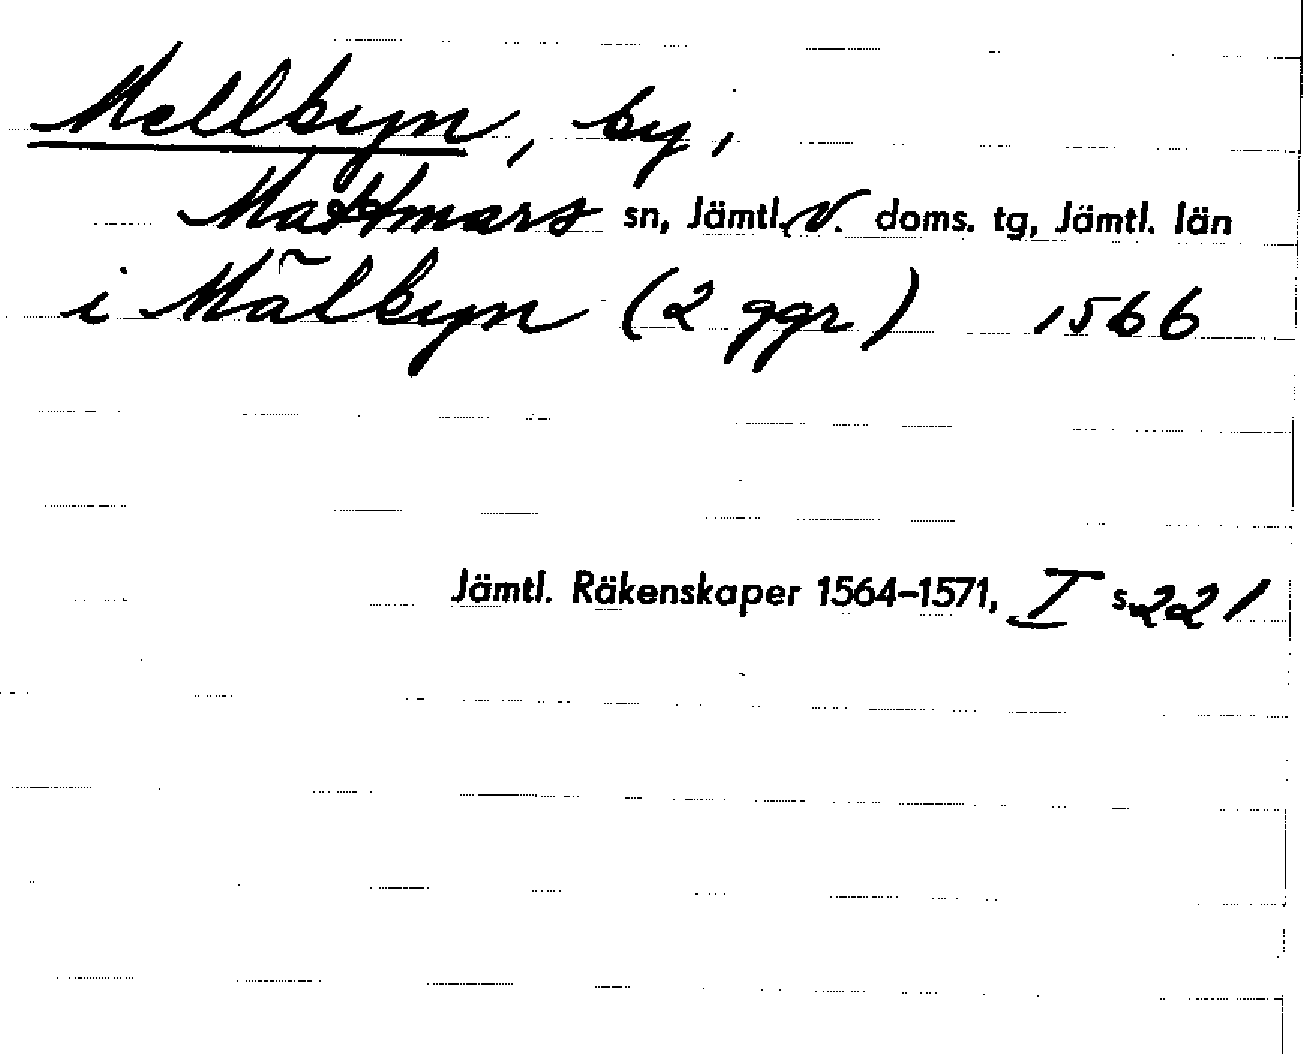 Mellbyn, by,
Mattmars sn, Jämtl. V. doms. tg, Jämtl. län
i Mälbyn (2 ggr) 1566
Jämtl. Räkenskaper 1564-1571, I s. 221